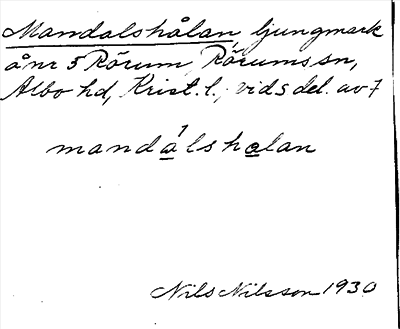 Mandalshålan ljungmark
å nr 5 Rörum, Rörums sn,
Albo hd, Krist. l., vid S del. av 7
mandalshalan
Nils Nilsson 1930